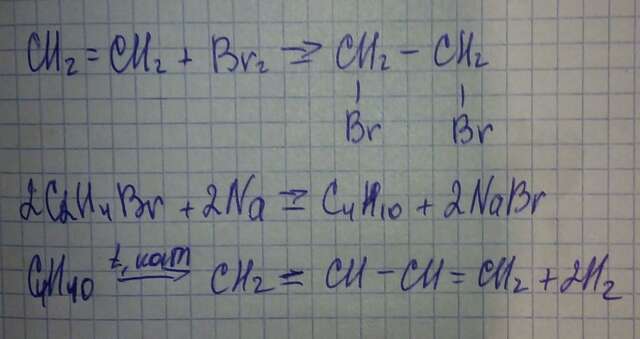 CH₂=CH₂ + Br₂ → CH₂ – CH₂
Br Br
2C₂H₄Br + 2Na = C₄H₁₀ + 2NaBr
C₄H₁₀ t, кат → CH₂ = CH – CH = CH₂ + 2H₂